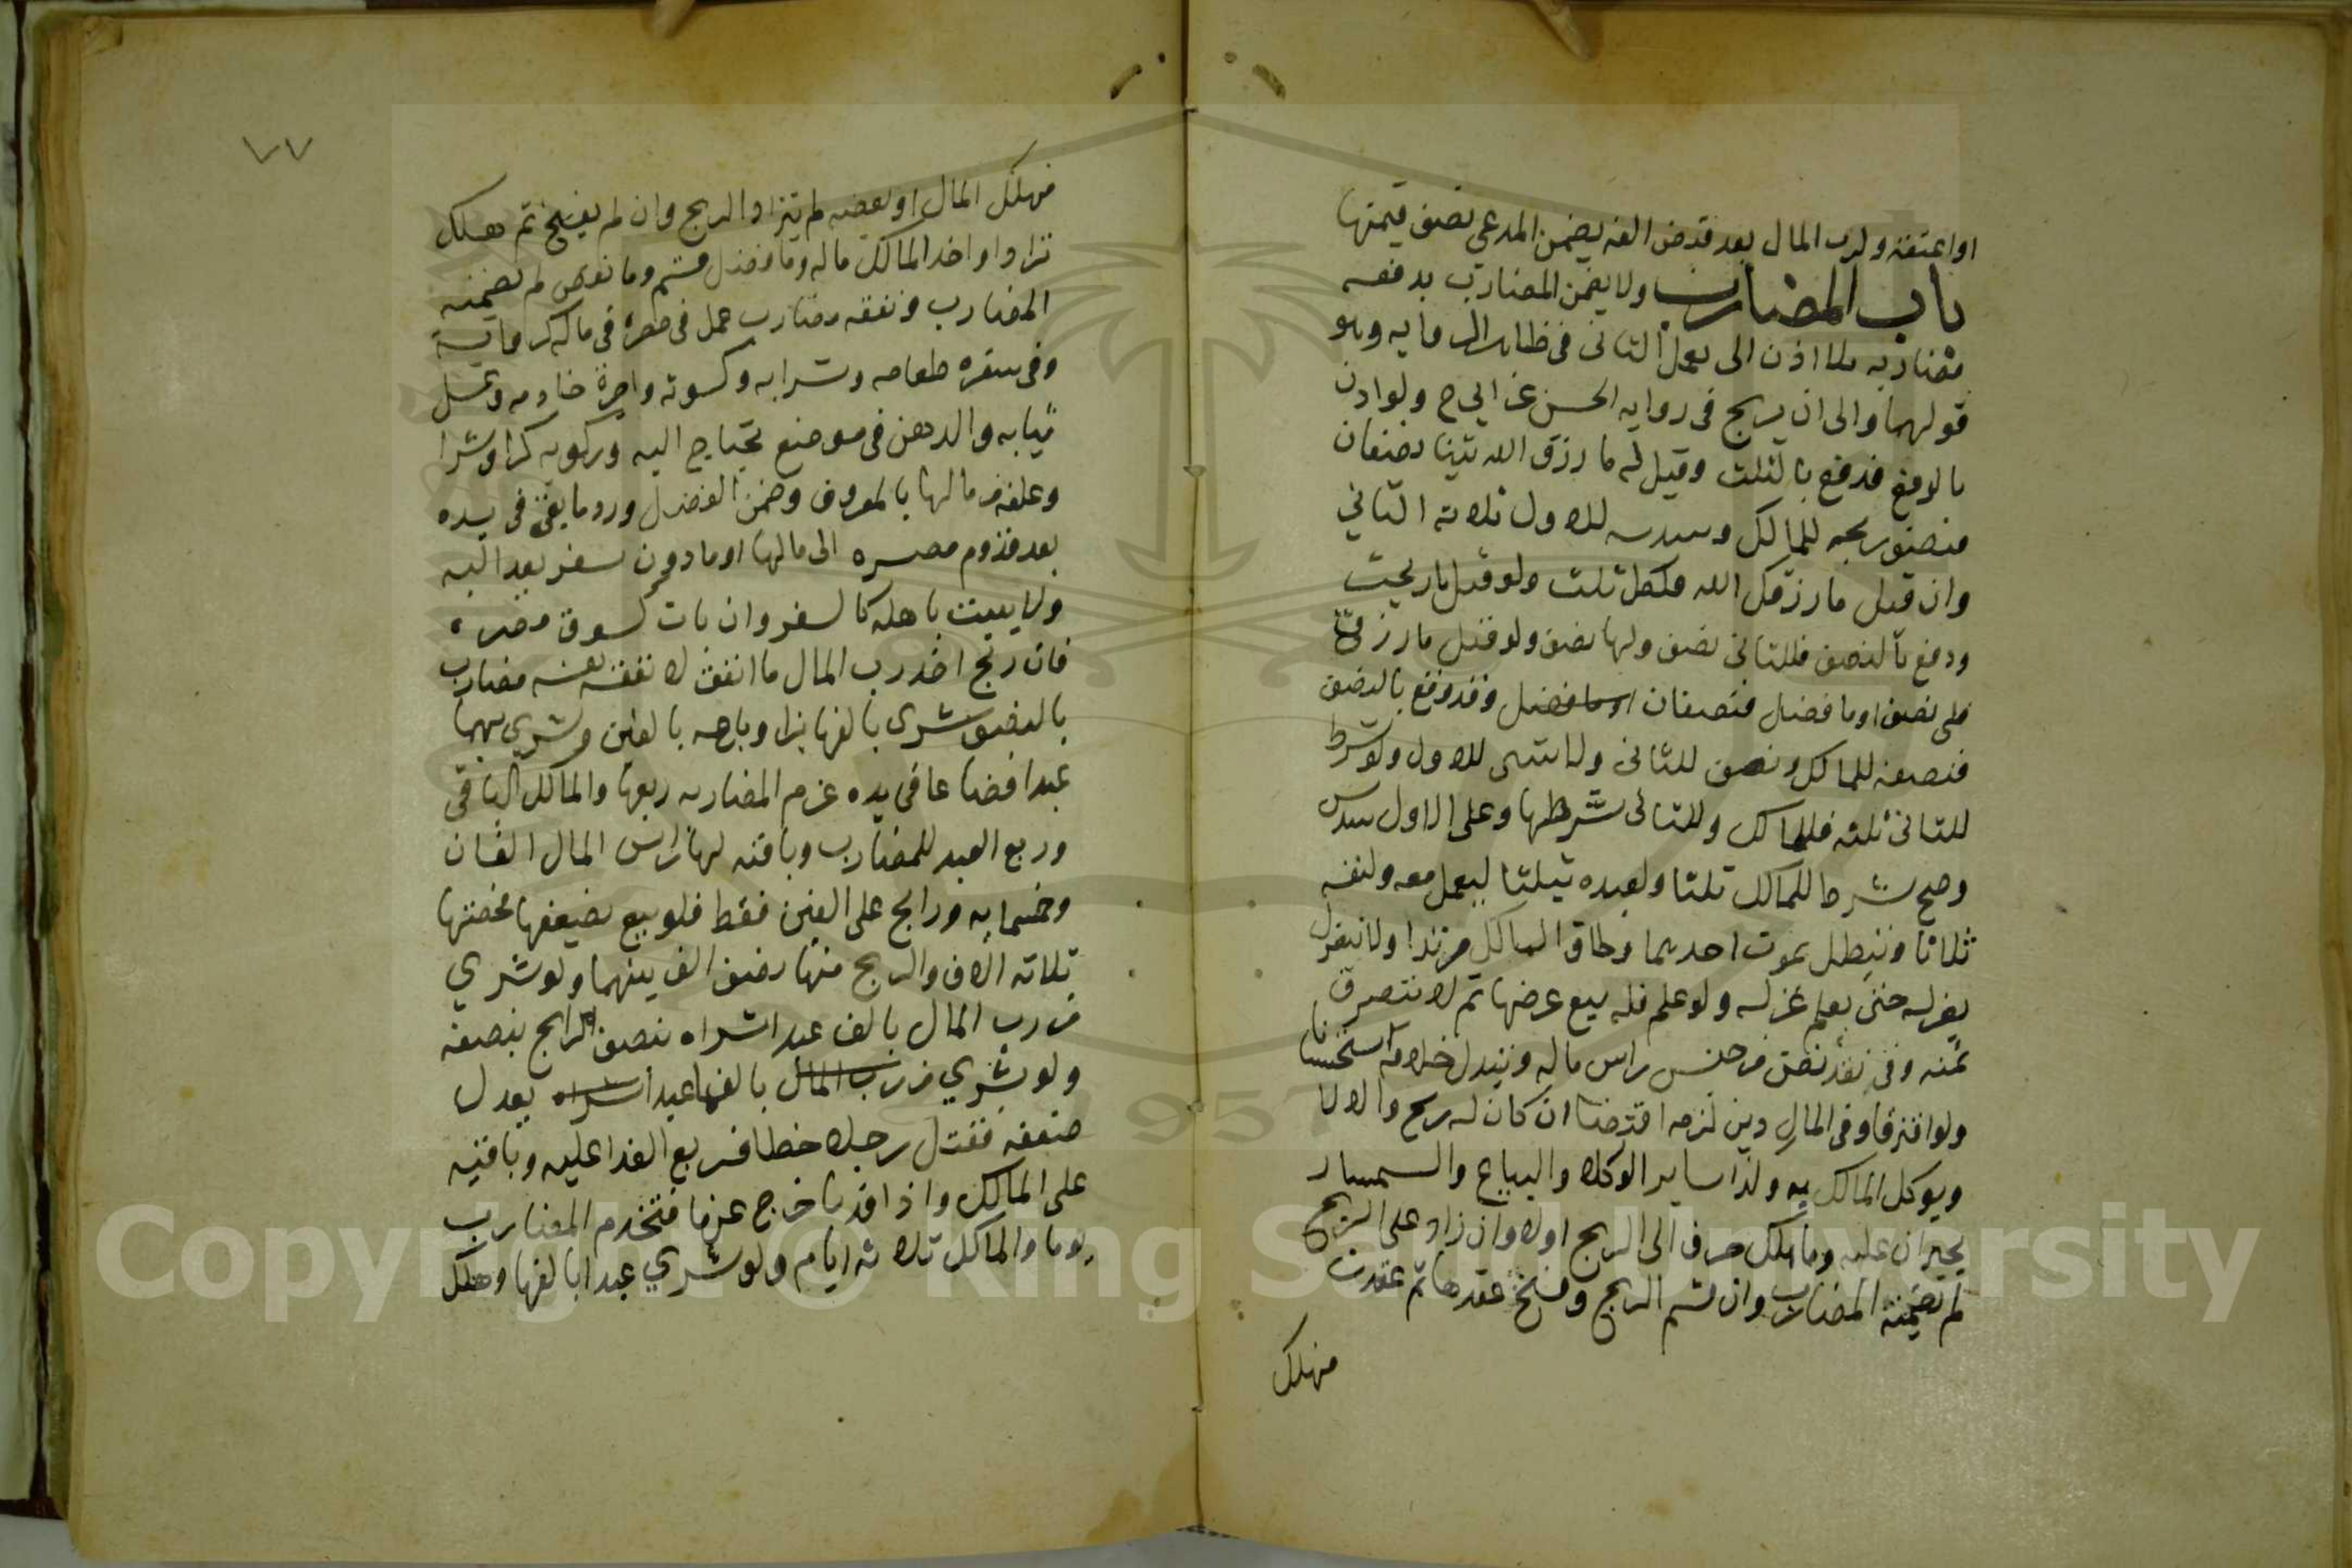 او اعتقه ولرب المال بعد قبض الفه يضمن المدعي نصف قيمتها
باب المضارب ولا يضمن المضارب بدفعه
مضاربه بلا اذن الى يعمل الثاني في ظاهر الروايه وهو
قولهما والى ان يربح في روايه الحسن عن ابي ح ولو اذن
بالدفع فدفع بالثلث وقيل له ما رزق الله بيننا نصفان
فنصف ربحه للمالك وسدسه للاول ثلاثه الثاني
وان قيل ما رزقك الله فلكل ثلث ولو قيل ما ربحت
ودفع بالنصف فللثاني نصف ولهما نصف ولو قيل ما رزق
فلي نصف او ما فضل فنصفان وقد دفع بالنصف
فنصفه للمالك ونصف للثاني ولا شى للاول ولو شرط
للثاني ثلثه فللمالك وللثاني شرطهما وعلى الاول سدس
وصح شرط للمالك ثلثا ولعبده ثلثا ليعمل معه ولنفسه
ثلاثا وتبطل بموت احدهما ولحاق المالك مرتدا ولا ينعزل
بعزله حتى يعلم عزله ولو علم فله بيع عرضها ثم لا يتصرف
ثمنه وفي نقد نض من جنس راس ماله ويبدل خلافه استحسانا
ولو افترقا وفي المال دين لزمه اقتضا ان كان له ربح والا لا
ويوكل المالك به وكذا ساير الوكلا والبياع والسمسار
يجبران عليه وما هلك صرف الى الربح اولا وان زاد على الربح
لم يضمنه المضارب وان قسم الربح وفسخ عقدها ثم عقدت
فهلك
٧٧
فهلك المال او بعضه لم يترادا الربح وان لم يفسخ ثم هلك
ترادا واخذ المالك ماله وما فضل قسم وما نقص لم يضمنه
المضارب ونفقه مضارب عمل في مصره في ماله كدوايه
وفي سفره طعامه وشرابه وكسوته واجرة خادمه وغسل
ثيابه والدهن في موضع يحتاج اليه وركوبه كرا وشرا
وعلفه من مالها بالمعروف وضمن الفضل ورد ما بقى في يده
بعد قدوم مصره الى مالها وما دون سفر يعدو اليه
ولا يبيت باهله كالسفر وان بات كسوق مصره
فان ربح اخذ رب المال ما انفق لا نفقة نفسه مضارب
بالنصف شرى بالفها بزا وباعه بالفين وشرى بهما
عبدا فضاعا في يده غرم المضارب ربعها والمالك الباقي
وربع العبد للمضارب وباقيه لها وراس المال الفان
وخمسمايه ورابح على الفين فقط فلو بيع بضعفهما فحصتها
ثلاثه الاف والربح منها نصف الف بينهما ولو شري
من رب المال بالف عبد اشراه بنصف الرابح بنصفه
ولو شري من رب المال بالفها عبد اشراه يعدل
ضعفه فقتل رجلا خطا فربع الفدا عليه وباقيه
على المالك واذا فديا خرج عنها فتخدم المضارب
يوما والمالك ثلاثه ايام ولو شري عبدا بالفها وهلك